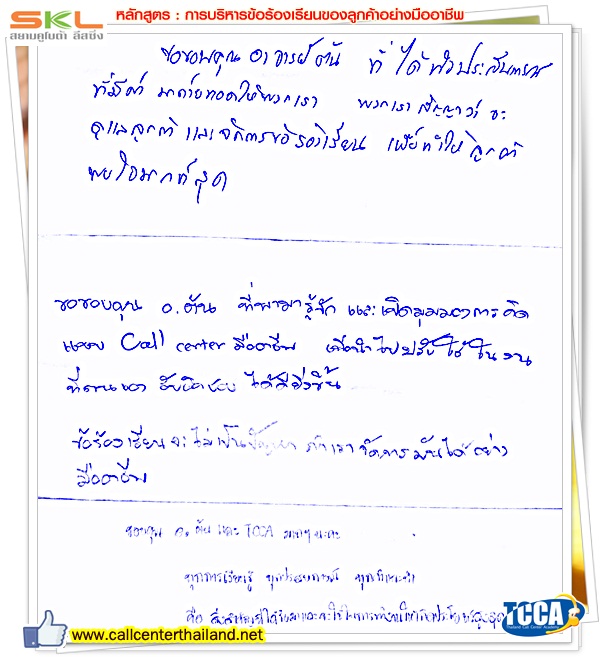 SKL
สยามคูโบต้า ลีสซิ่ง
หลักสูตร : การบริหารข้อร้องเรียนของลูกค้าอย่างมืออาชีพ
ขอขอบคุณ อาจารย์ต้น ที่ได้นำประสบการณ์
ที่มีค่า มาถ่ายทอดให้พวกเรา พวกเราสัญญาว่า จะ
ดูแลลูกค้า และจัดการข้อร้องเรียน เพื่อทำให้ลูกค้า
พอใจมากที่สุด
ขอขอบคุณ อ.ต้น ที่พามารู้จัก และเปิดมุมมองการคิด
แบบ Call center มืออาชีพ เพื่อนำไปปรับใช้ในงาน
ที่ตนเอง รับผิดชอบ ได้ดียิ่งขึ้น
ข้อร้องเรียนจะไม่เป็นปัญหา ถ้าเราจัดการมันได้อย่าง
มืออาชีพ
ขอบคุณ อ.ต้น และ TCCA มากๆนะคะ
ทุกการเรียนรู้ ทุกประสบการณ์ ทุกคำแนะนำ
คือ
TCCA
Thailand Call Center Academy
www.callcenterthailand.net